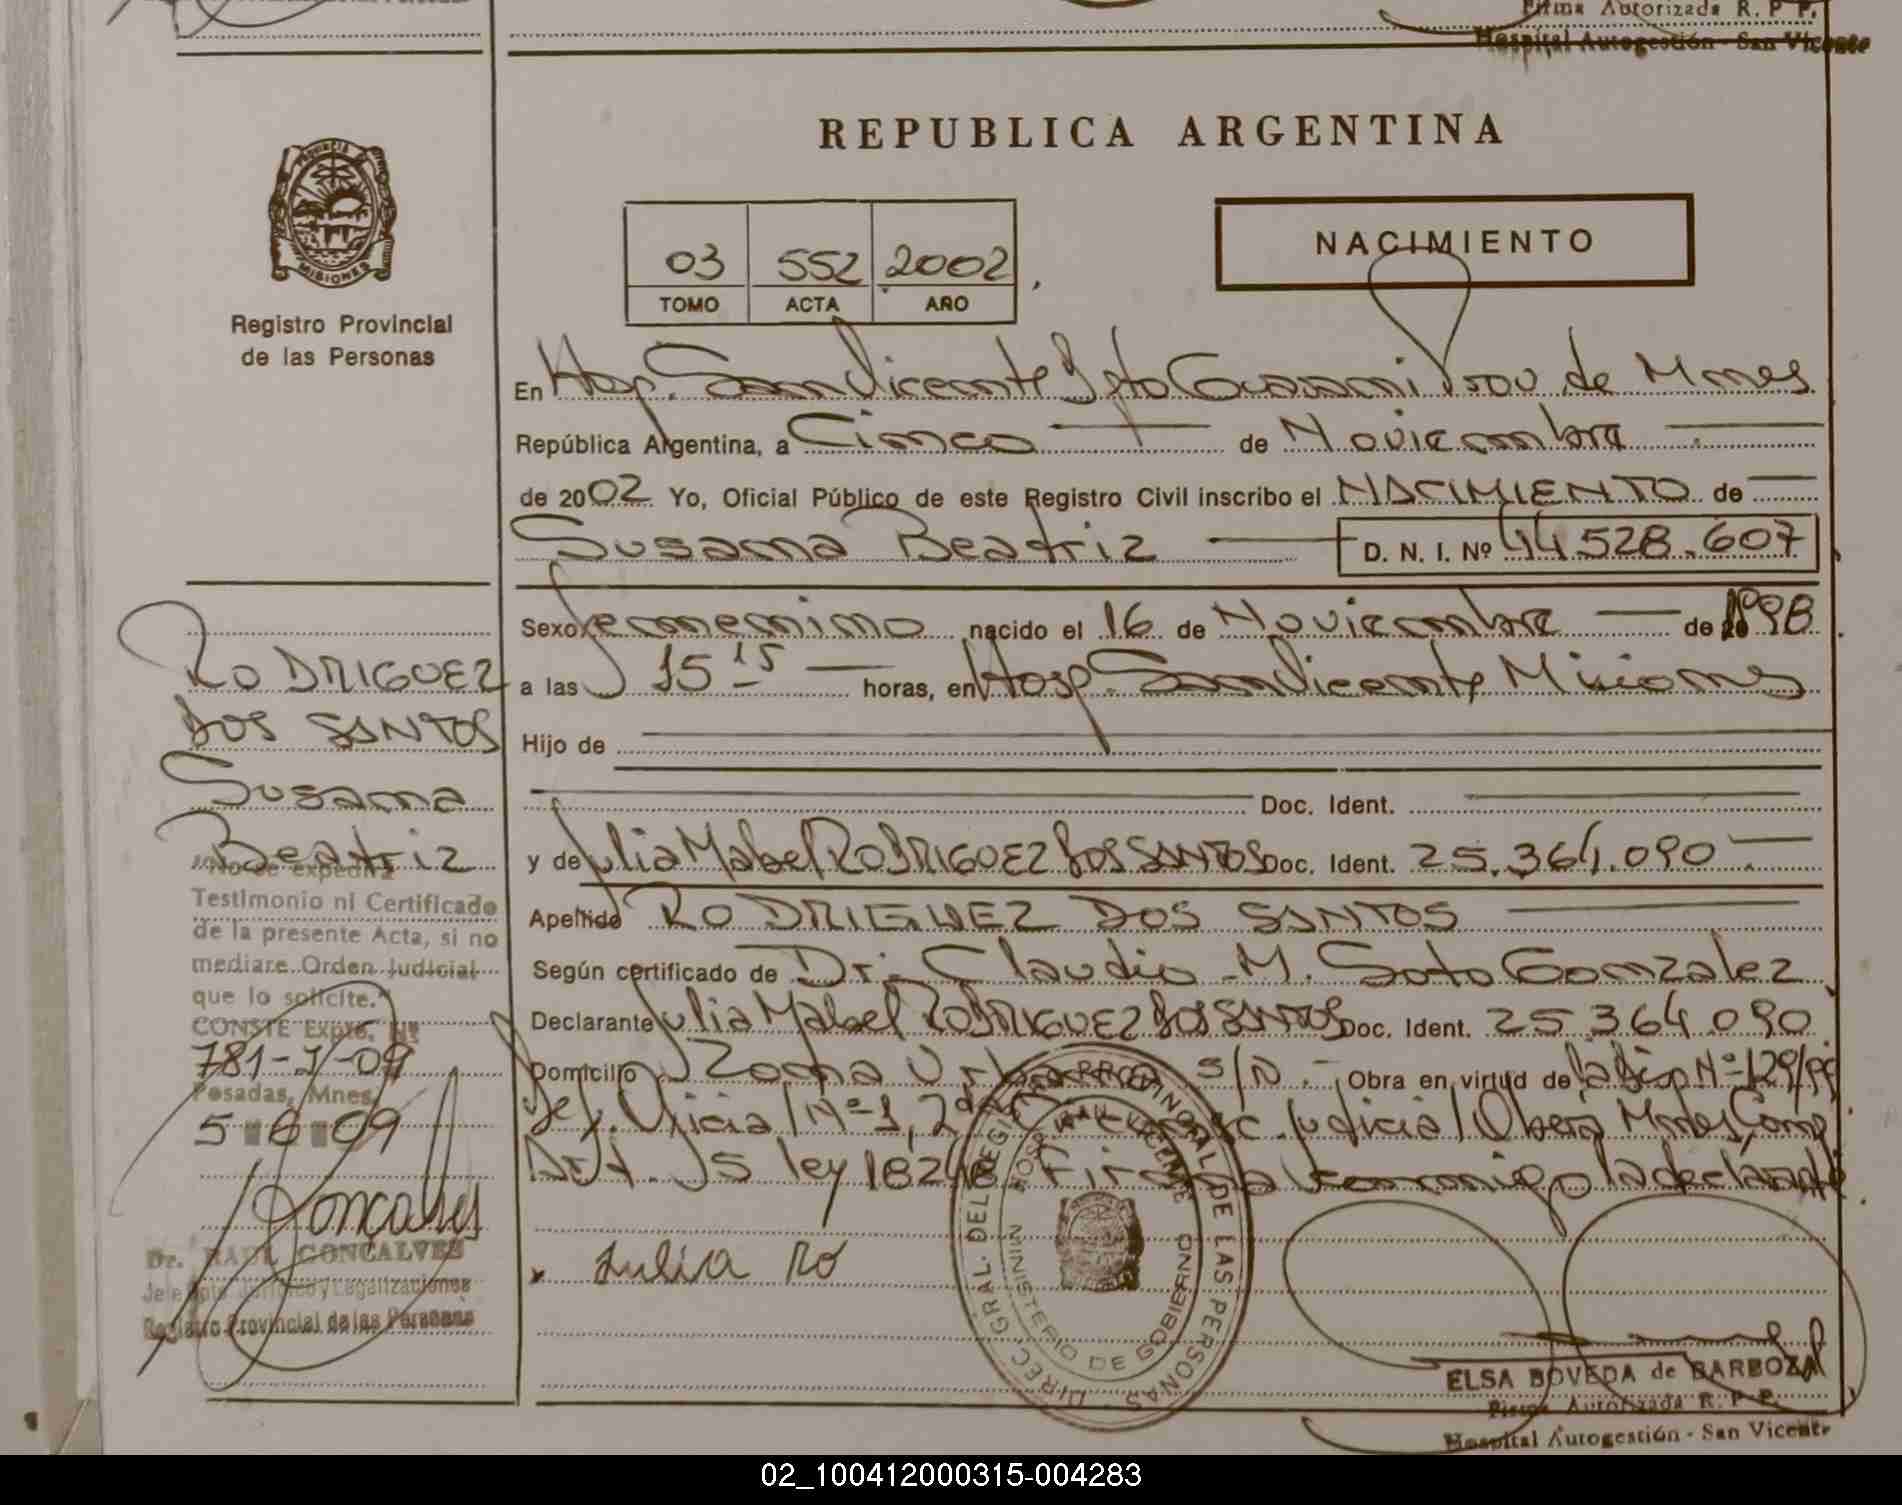 Firma Autorizada R. P. P.
Hospital Autogestión - San Vicente
REPUBLICA ARGENTINA
PROVINCIA DE
MISIONES
Registro Provincial
de las Personas
03 552 2002
TOMO ACTA AÑO
NACIMIENTO
En Hosp. San Vicente Dpto Guarani Prov. de Mnes
República Argentina, a Cinco de Noviembre
de 2002 Yo, Oficial Público de este Registro Civil inscribo el NACIMIENTO de
Susana Beatriz D. N. I. Nº 44.528.607
Sexo femenino nacido el 16 de Noviembre de 1998
a las 15 15 horas, en Hosp. San Vicente Misiones
Hijo de
Doc. Ident.
y de Julia Mabel RODRIGUEZ DOS SANTOS Doc. Ident. 25.364.090
Apellido RODRIGUEZ DOS SANTOS
Según certificado de Dr. Claudio M. Soto Gonzalez
Declarante Julia Mabel RODRIGUEZ DOS SANTOS Doc. Ident. 25 364 090
Domicilio Zona Urbana s/n.- Obra en virtud de la Disp Nº 129/99
Def. Oficial Nº 1, 2da Judicial Oberá Mnes, Comp
Art. 15 ley 18248 Firma conmigo la declarante
x Julia Ro
RODRIGUEZ
DOS SANTOS
Susana
Beatriz
"No se expedirá
Testimonio ni Certificado
de la presente Acta, si no
mediare Orden Judicial
que lo solicite."
CONSTE Expte. Nº
781-J-09
Posadas, Mnes,
5 6 09
Goncalves
Dr. RAUL GONCALVES
Jefe Dpto. Jurídico y Legalizaciones
Registro Provincial de las Personas
DIREC. GRAL. DEL REGISTRO PROVINCIAL DE LAS PERSONAS
HOSP. SAN VICENTE
MINISTERIO DE GOBIERNO
ELSA BOVEDA de BARBOZA
Firma Autorizada R. P. P.
Hospital Autogestión - San Vicente
02_100412000315-004283